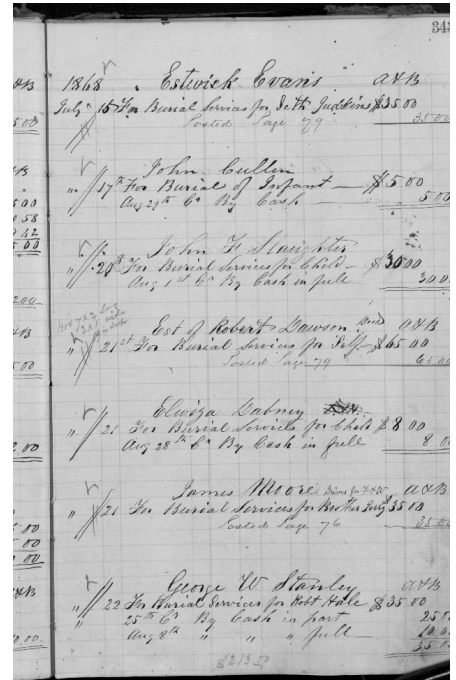 343
1868 Estwick Evans A&B
July 15 For Burial Services for Seth Judkins $35 00
Posted Page 79 35 00
John Cullen
" 17th For Burial of Infant — $5 00
Aug 29th Cr By Cash — 5 00
John F Slaughter
" 20th For Burial Services for Child — $30 00
Aug 1st Cr By Cash in full 30 00
Est of Robert Dawson Decd A&B
" 21st For Burial Services for Self — $65 00
Posted Page 79 65 00
Elwiza Dabney
" 21 For Burial Services for Child $8 00
Aug 28th Cr By Cash in full 8 00
James Moore Drives for A&B
" 21 For Burial Services for Brother $35 00
Posted Page 76 35 00
George W Stanley A&B
" 22 For Burial Services for Robt Hale $35 00
25th Cr By Cash in part 25 00
Aug 8th " " " full — 10 00
35 00